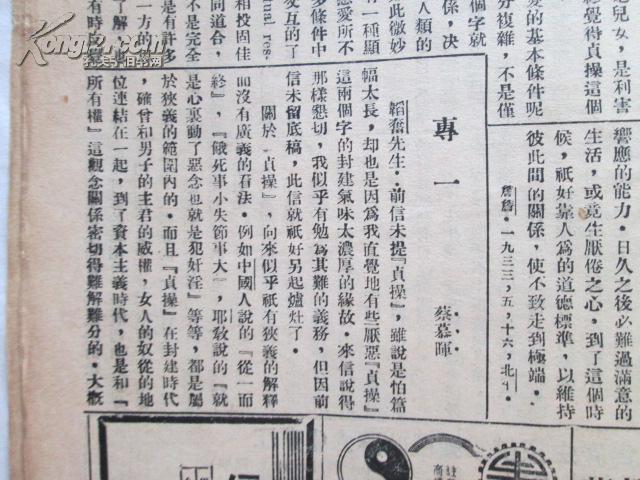 兒女，是利害
覺得貞操這個
的基本條件呢
分複雜，不是僅
響應的能力．日久之後必難過滿意的
生活，或竟生厭倦之心，到了這個時
候，祇好靠人為的道德標準，以維持
彼此間的關係，使不致走到極端．
詹詹．一九三三，五，十六，北
個字就
係，決
人類的
此微妙
有一種顯
戀愛所不
多條件中
交互的了
inal res-
相投固佳
同道合，
不是完全
是有許多
一方的
了解
有時
專一
蔡慕暉
韜奮先生．前信未提『貞操』，雖說是怕篇
幅太長，却也是因為我直覺地有些厭惡『貞操』
這兩個字的封建氣味太濃厚的緣故．來信說得
那樣懇切，我似乎有勉為其難的義務，但因前
信未留底稿，此信就祇好另起爐灶了．
關於『貞操』，向來似乎祇有狹義的解釋
而沒有廣義的看法．例如中國人說的『從一而
終』，『餓死事小失節事大』，耶教說的『就
是心裏動了惡念也就是犯奸淫』等等，都是屬
於狹義的範圍內的．而且『貞操』在封建時代
，確曾和男子的主君的威權，女人的奴從的地
位連結在一起，到了資本主義時代，也是和『
所有權』這觀念關係密切得難解難分的．大概
孔夫子旧书网